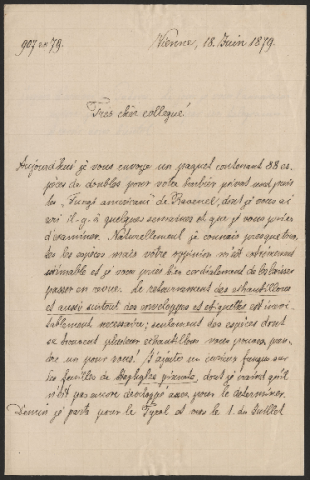 907 [ex] 79.
Vienne, 18. Juin 1879.
Très cher collegue
Aujourd'hui je vous envoie un paquet contenant 88 es-
pèces de doubles pour votre herbier privat
Fungi americani de Ravenel, dont je vous
il-y-a quelques semaines et que je vous prier
d'examiner. Naturellement je connais presque tou-
tes les espèces mais votre opinion m'est extrèmement
estimable et je vous prie bien cordialement de les laisser
passer en revue. Le retournement des echantillons
et aussi surtout des enveloppes et etiquettes est inevi-
tablement necessaire; seulement des espèces dont
se trouvent plusieurs echantillons vous pouvez pren-
dre un pour vous! J'ajoute un curieux fungus sur
les feuilles de gigantea, dont je craind qu'il
n'est pas encore developpé assez pour le determiner.
Demain je parte pour le Tyrol et vers le 1. de Juillet